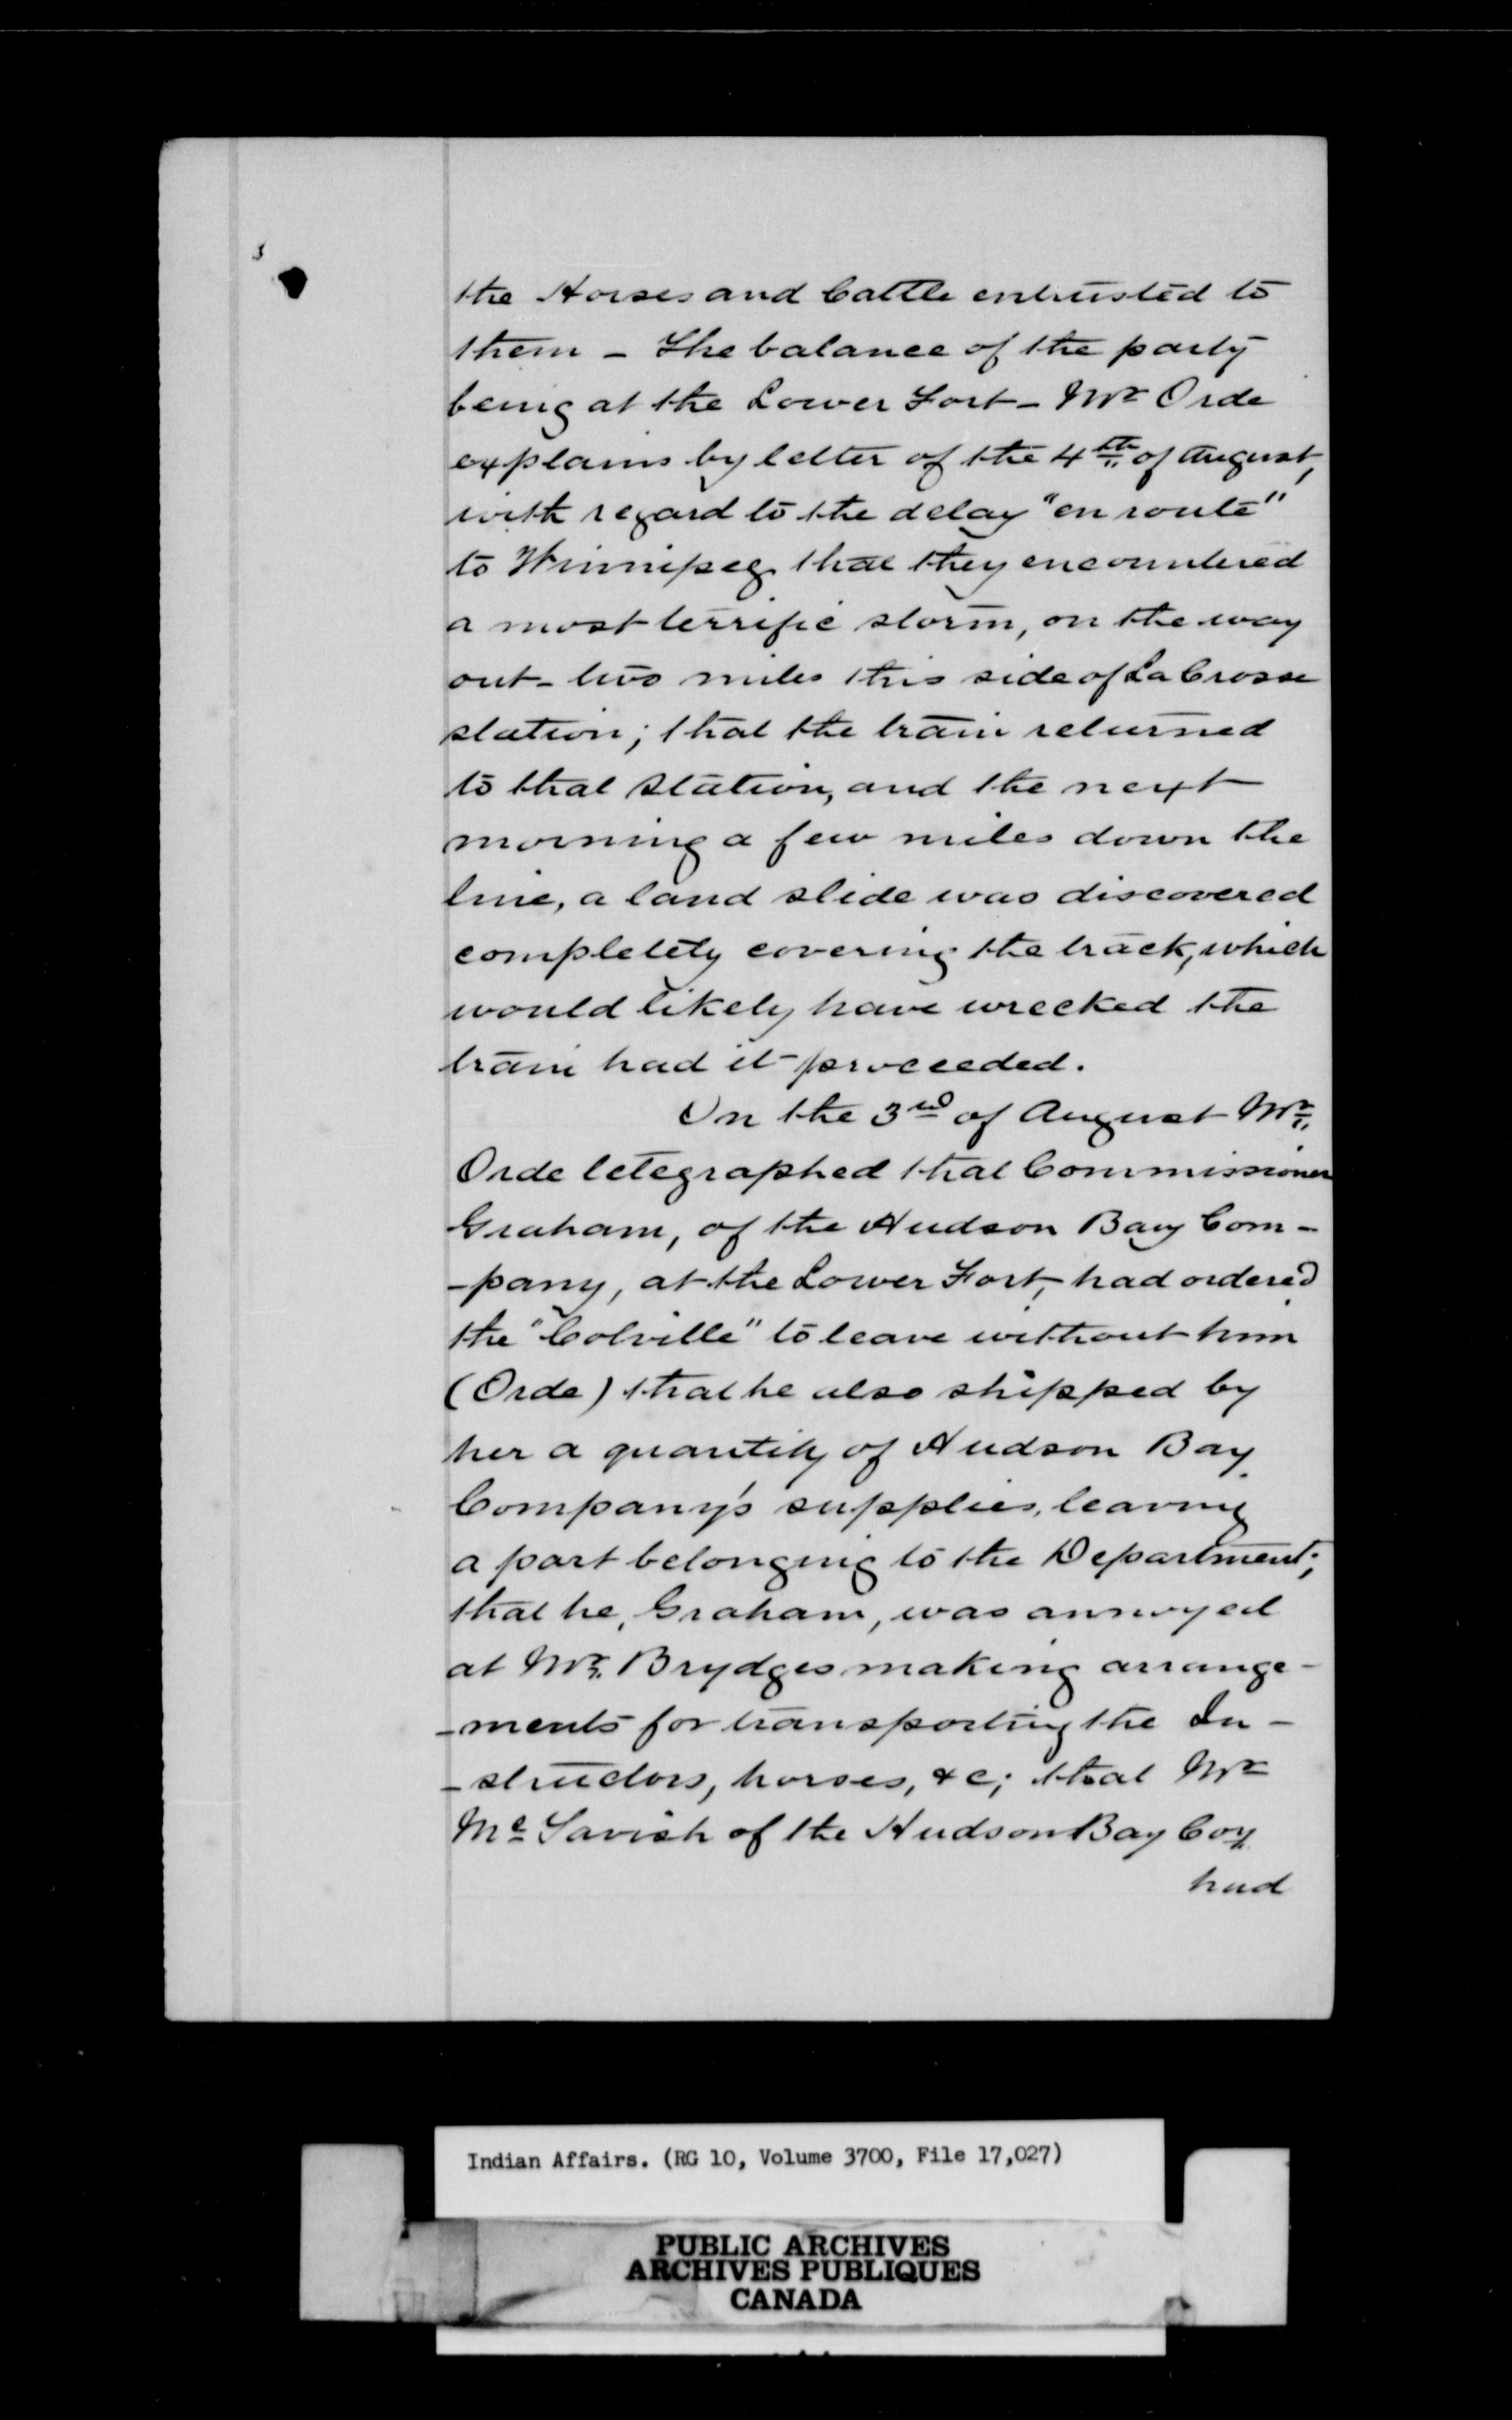 the Horses and Cattle entrusted to
them – The balance of the party
being at the Lower Fort – Mr Orde
explains by letter of the 4th of August,
with regard to the delay "en route"
to Winnipeg that they encountered
a most terrific storm, on the way
out – two miles this side of La Crosse
station; that the train returned
to that station, and the next
morning a few miles down the
line, a land slide was discovered
completely covering the track, which
would likely have wrecked the
train had it proceeded.
On the 3rd of August Mr.
Orde telegraphed that Commissioner
Graham, of the Hudson Bay Com-
-pany, at the Lower Fort, had ordered
the "Colville" to leave without him
(Orde) that he also shipped by
her a quantity of Hudson Bay
Company's supplies, leaving
a part belonging to the Department;
that he, Graham, was annoyed
at Mr. Brydges making arrange-
-ments for transporting the In-
-structors, horses, &c; that Mr
McTavish of the Hudson Bay Coy
had
Indian Affairs. (RG 10, Volume 3700, File 17,027)
PUBLIC ARCHIVES
ARCHIVES PUBLIQUES
CANADA